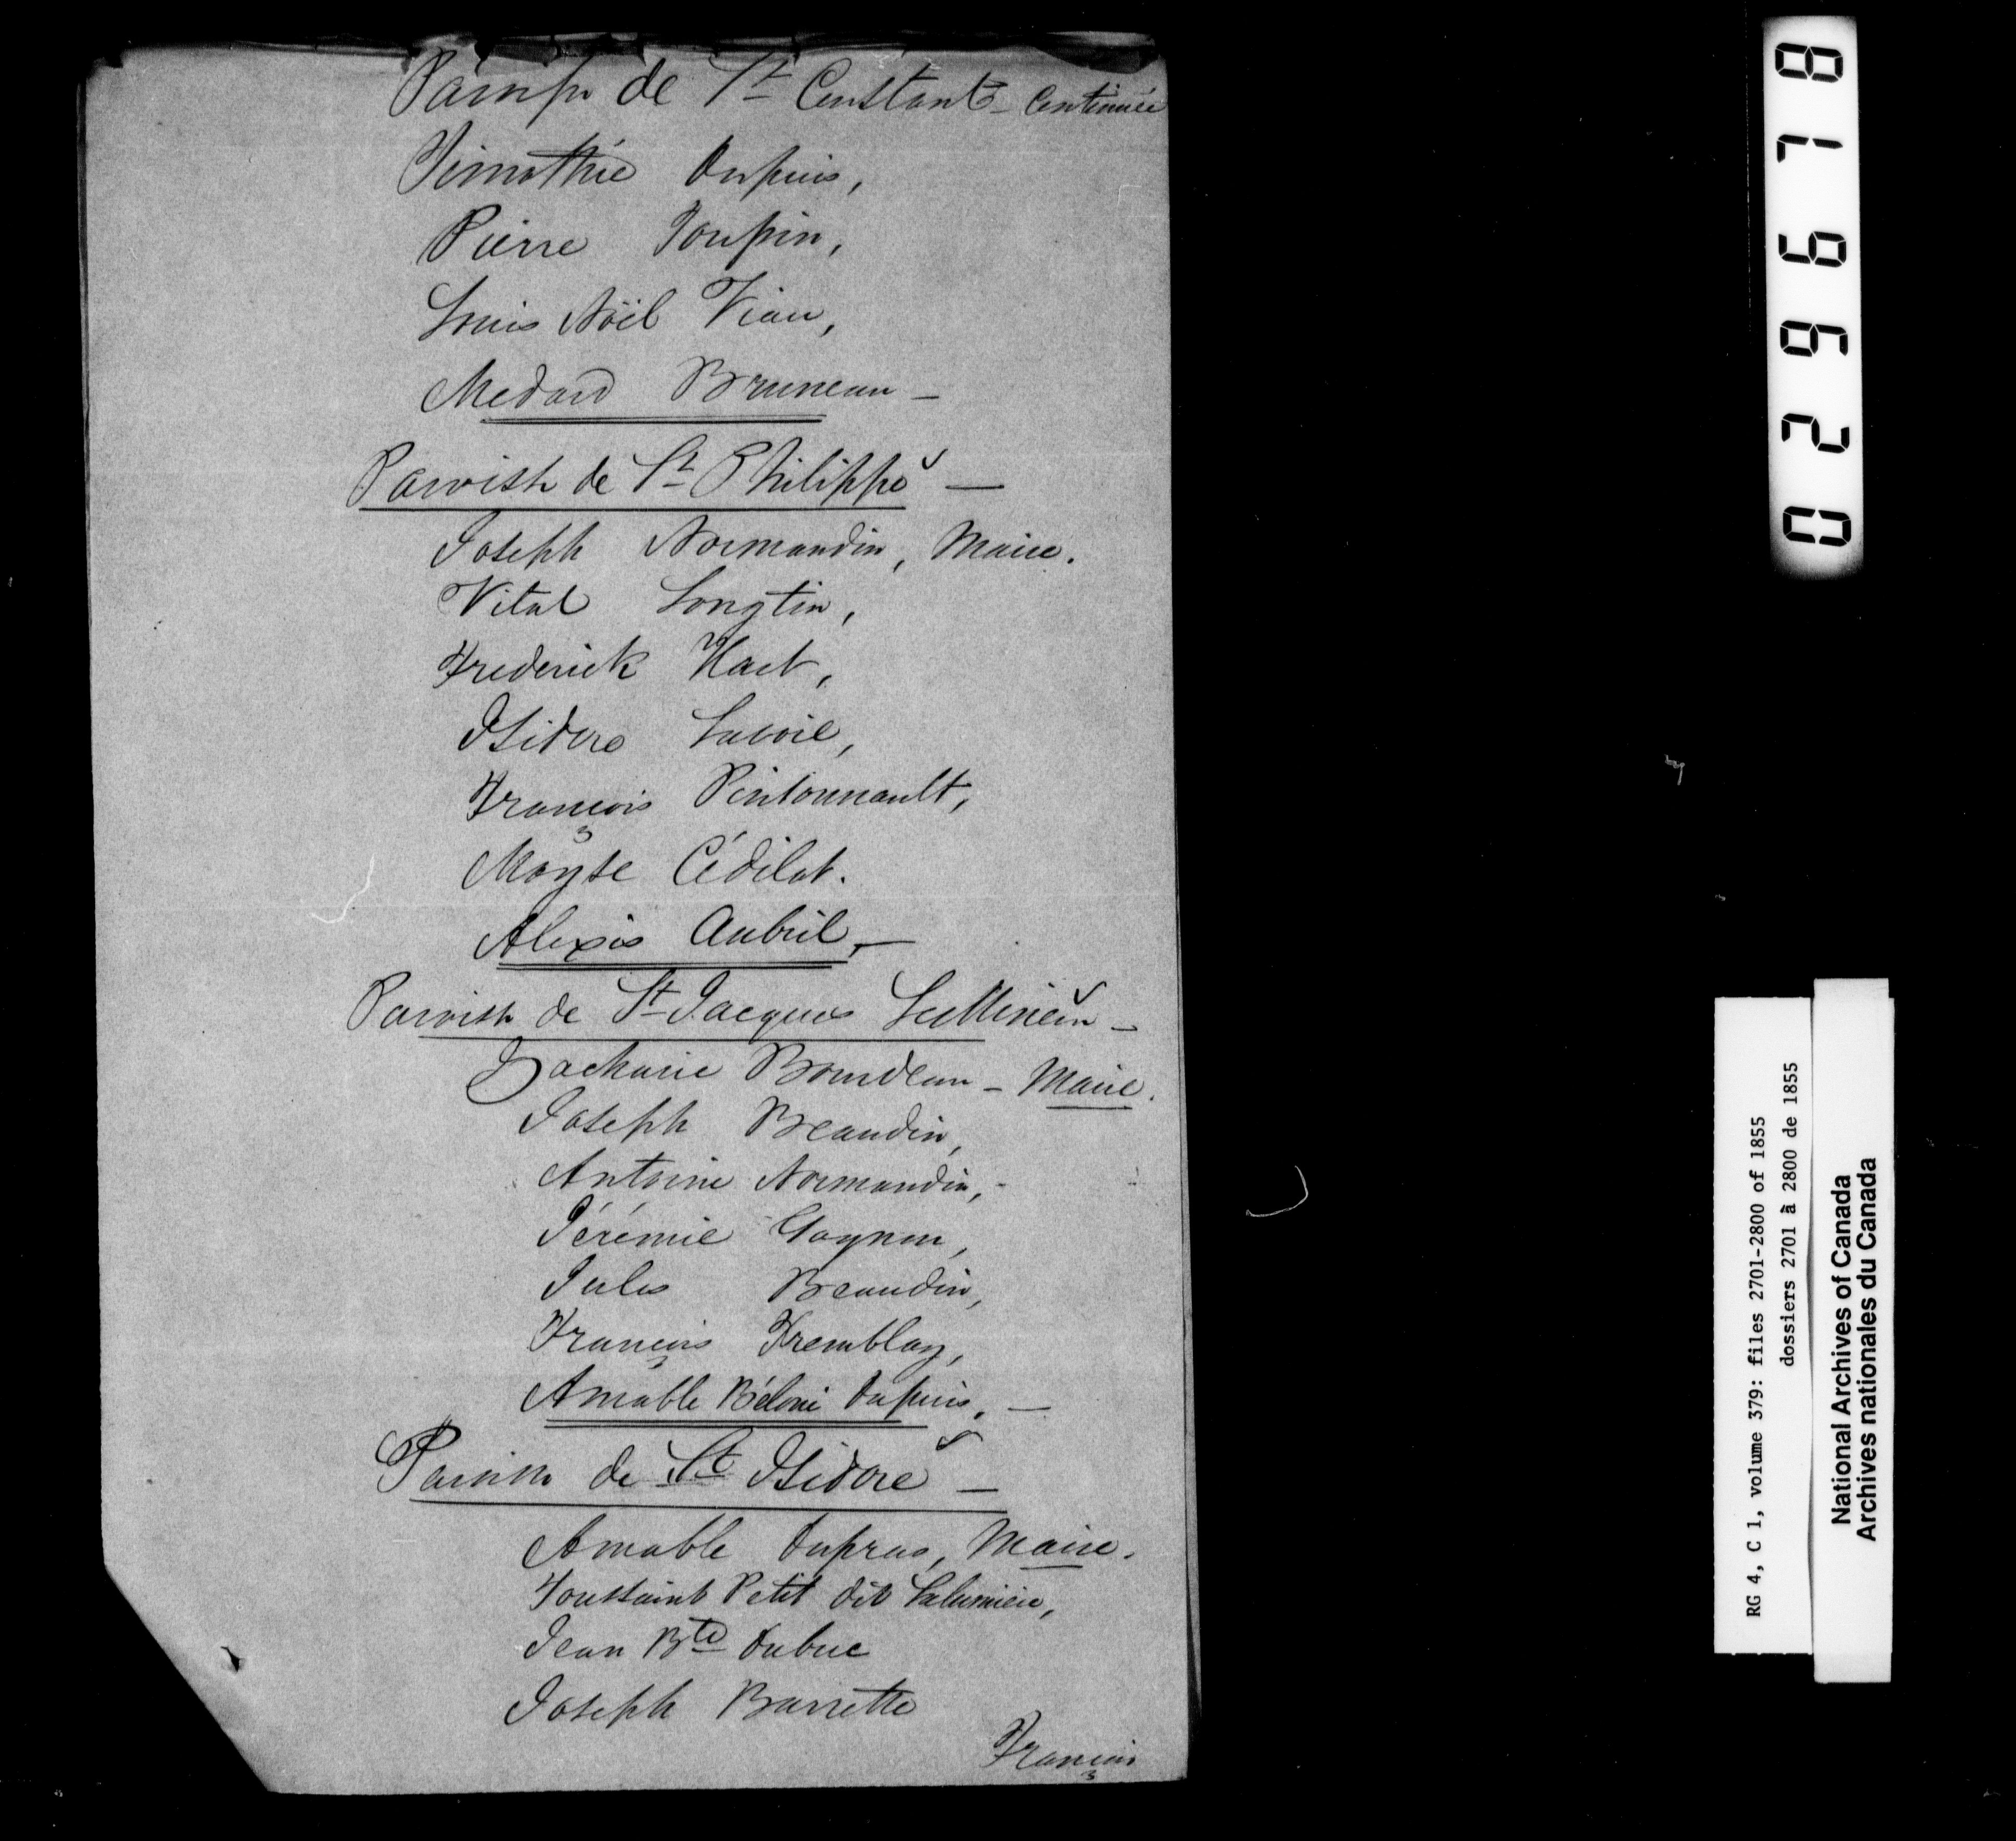 Paroisse de St Constant – Continuée
Timothée Dupuis,
Pierre Poupin,
Louis Noël Viau,
Medard Bruneau –
Paroisse de St Philippe –
Joseph Normandin, Maire.
Vital Longtin,
Frederick Hart,
Isidore Lavoie,
François Pintonnault,
Moyse Cédilot.
Alexis Aubril, –
Paroisse de St Jacques LeMineur –
Zacharie Bourdeau – Maire.
Joseph Beaudin,
Antoine Normandin, -
Jérémie Gagnon,
Jules Beaudin,
François Tremblay,
Amable Béloni Dupuis, –
Paroisse de St Isidore –
Amable Dupras, Maire.
Toussaint Petit dit Lalumière,
Jean Bte Dubuc
Joseph Barrette
François
029678
RG 4, C 1, volume 379: files 2701-2800 of 1855
dossiers 2701 à 2800 de 1855
National Archives of Canada
Archives nationales du Canada